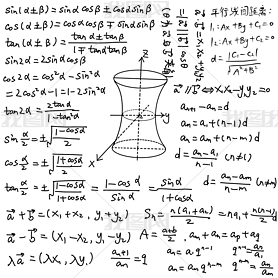 sin(α±β)=sinαcosβ±cosαsinβ
cos(α±β)=cosαcosβ∓sinαsinβ
tan(α±β)=(tanα±tanβ)/(1∓tanαtanβ)
sin2α=2sinαcosβ
cos2α=cos²α-sin²α
=2cos²α-1=1-2sin²α
tan2α=2tanα/(1-tan²α)
sin α/2=±√((1-cosα)/2)
cos α/2=±√((1+cosα)/2)
tan α/2=±√((1-cosα)/(1+cosα))=(1-cosα)/sinα=sinα/(1+cosα)
a+b=(x₁+x₂,y₁+y₂)
a-b=(x₁-x₂,y₁-y₂)
λa=(λx,λy)
z
y
x
平行线间距离:
l₁:Ax+By+C₁=0
l₂:Ax+By+C₂=0
d=|C₁-C₂|/√(A²+B²)
a∥b⇔x₁y₂-x₂y₁=0
aₙ₊₁-aₙ=d
aₙ=a₁+(n-1)d
aₙ=aₘ+(n-m)d
d=(aₙ-a₁)/(n-1) (n≠1)
d=(aₙ-aₘ)/(n-m) (n≠m)
Sₙ=n(a₁+aₙ)/2=na₁+n(n-1)/2 d
A=(a+b)/2
aₘ+aₙ=aₚ+a_q
aₙ₊₁/aₙ=q
aₙ=a₁qⁿ⁻¹
qⁿ⁻¹=aₙ/a₁
aₙ=aₘqⁿ⁻ᵐ
qⁿ⁻ᵐ=aₙ/aₘ